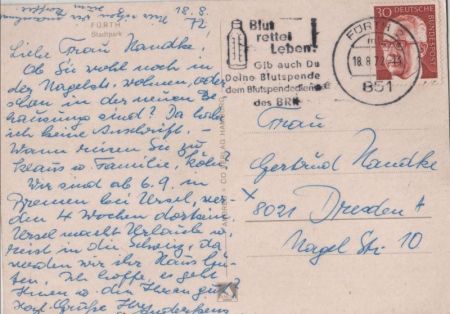 18.8.
72
FÜRTH
Stadtpark
Liebe Frau Nandke!
Ob Sie wohl noch in
der Nagelstr. wohnen, oder
schon in der neuen Be
hausung sind? Da habe
ich keine Anschrift. -
Wann reisen Sie zu
Klaus u. Familie, Köln?
Wir sind ab 6.9. in
Bremen bei Ursel, wer
den 4 Wochen dort sein
Ursel macht Urlaub u.
reist in die Schweiz, da
werden wir ihr Haus hü-
ten. Ich hoffe, es geht
Ihnen u. den Ihren gut?
Herzl. Grüße Ihre
Blut
rettet
Leben!
Gib auch Du
Deine Blutspende
dem Blutspendedienst
des BRK
FÜRTH
18.8.72
851
30
DEUTSCHE
BUNDESPOST
Frau
Gertrud Nandke
8021 Dresden A
Nagel Str. 10